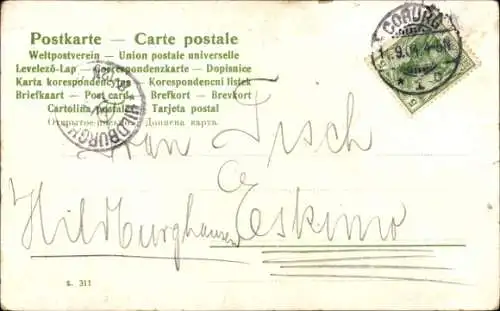 Postkarte — Carte postale
Weltpostverein — Union postale universelle
Levelező-Lap — Correspondenzkarte — Dopisnice
Karta korespondencyjna — Korespondenční lístek
Briefkaart — Post card — Brefkort — Brevkort
Cartolina postale — Tarjeta postal
Открытое письмо — Дописна карта.
COBURG
9.04. 4-5N
HILDBURGH
5
Tisch
Hildburghausen
Eskimo
S. 311